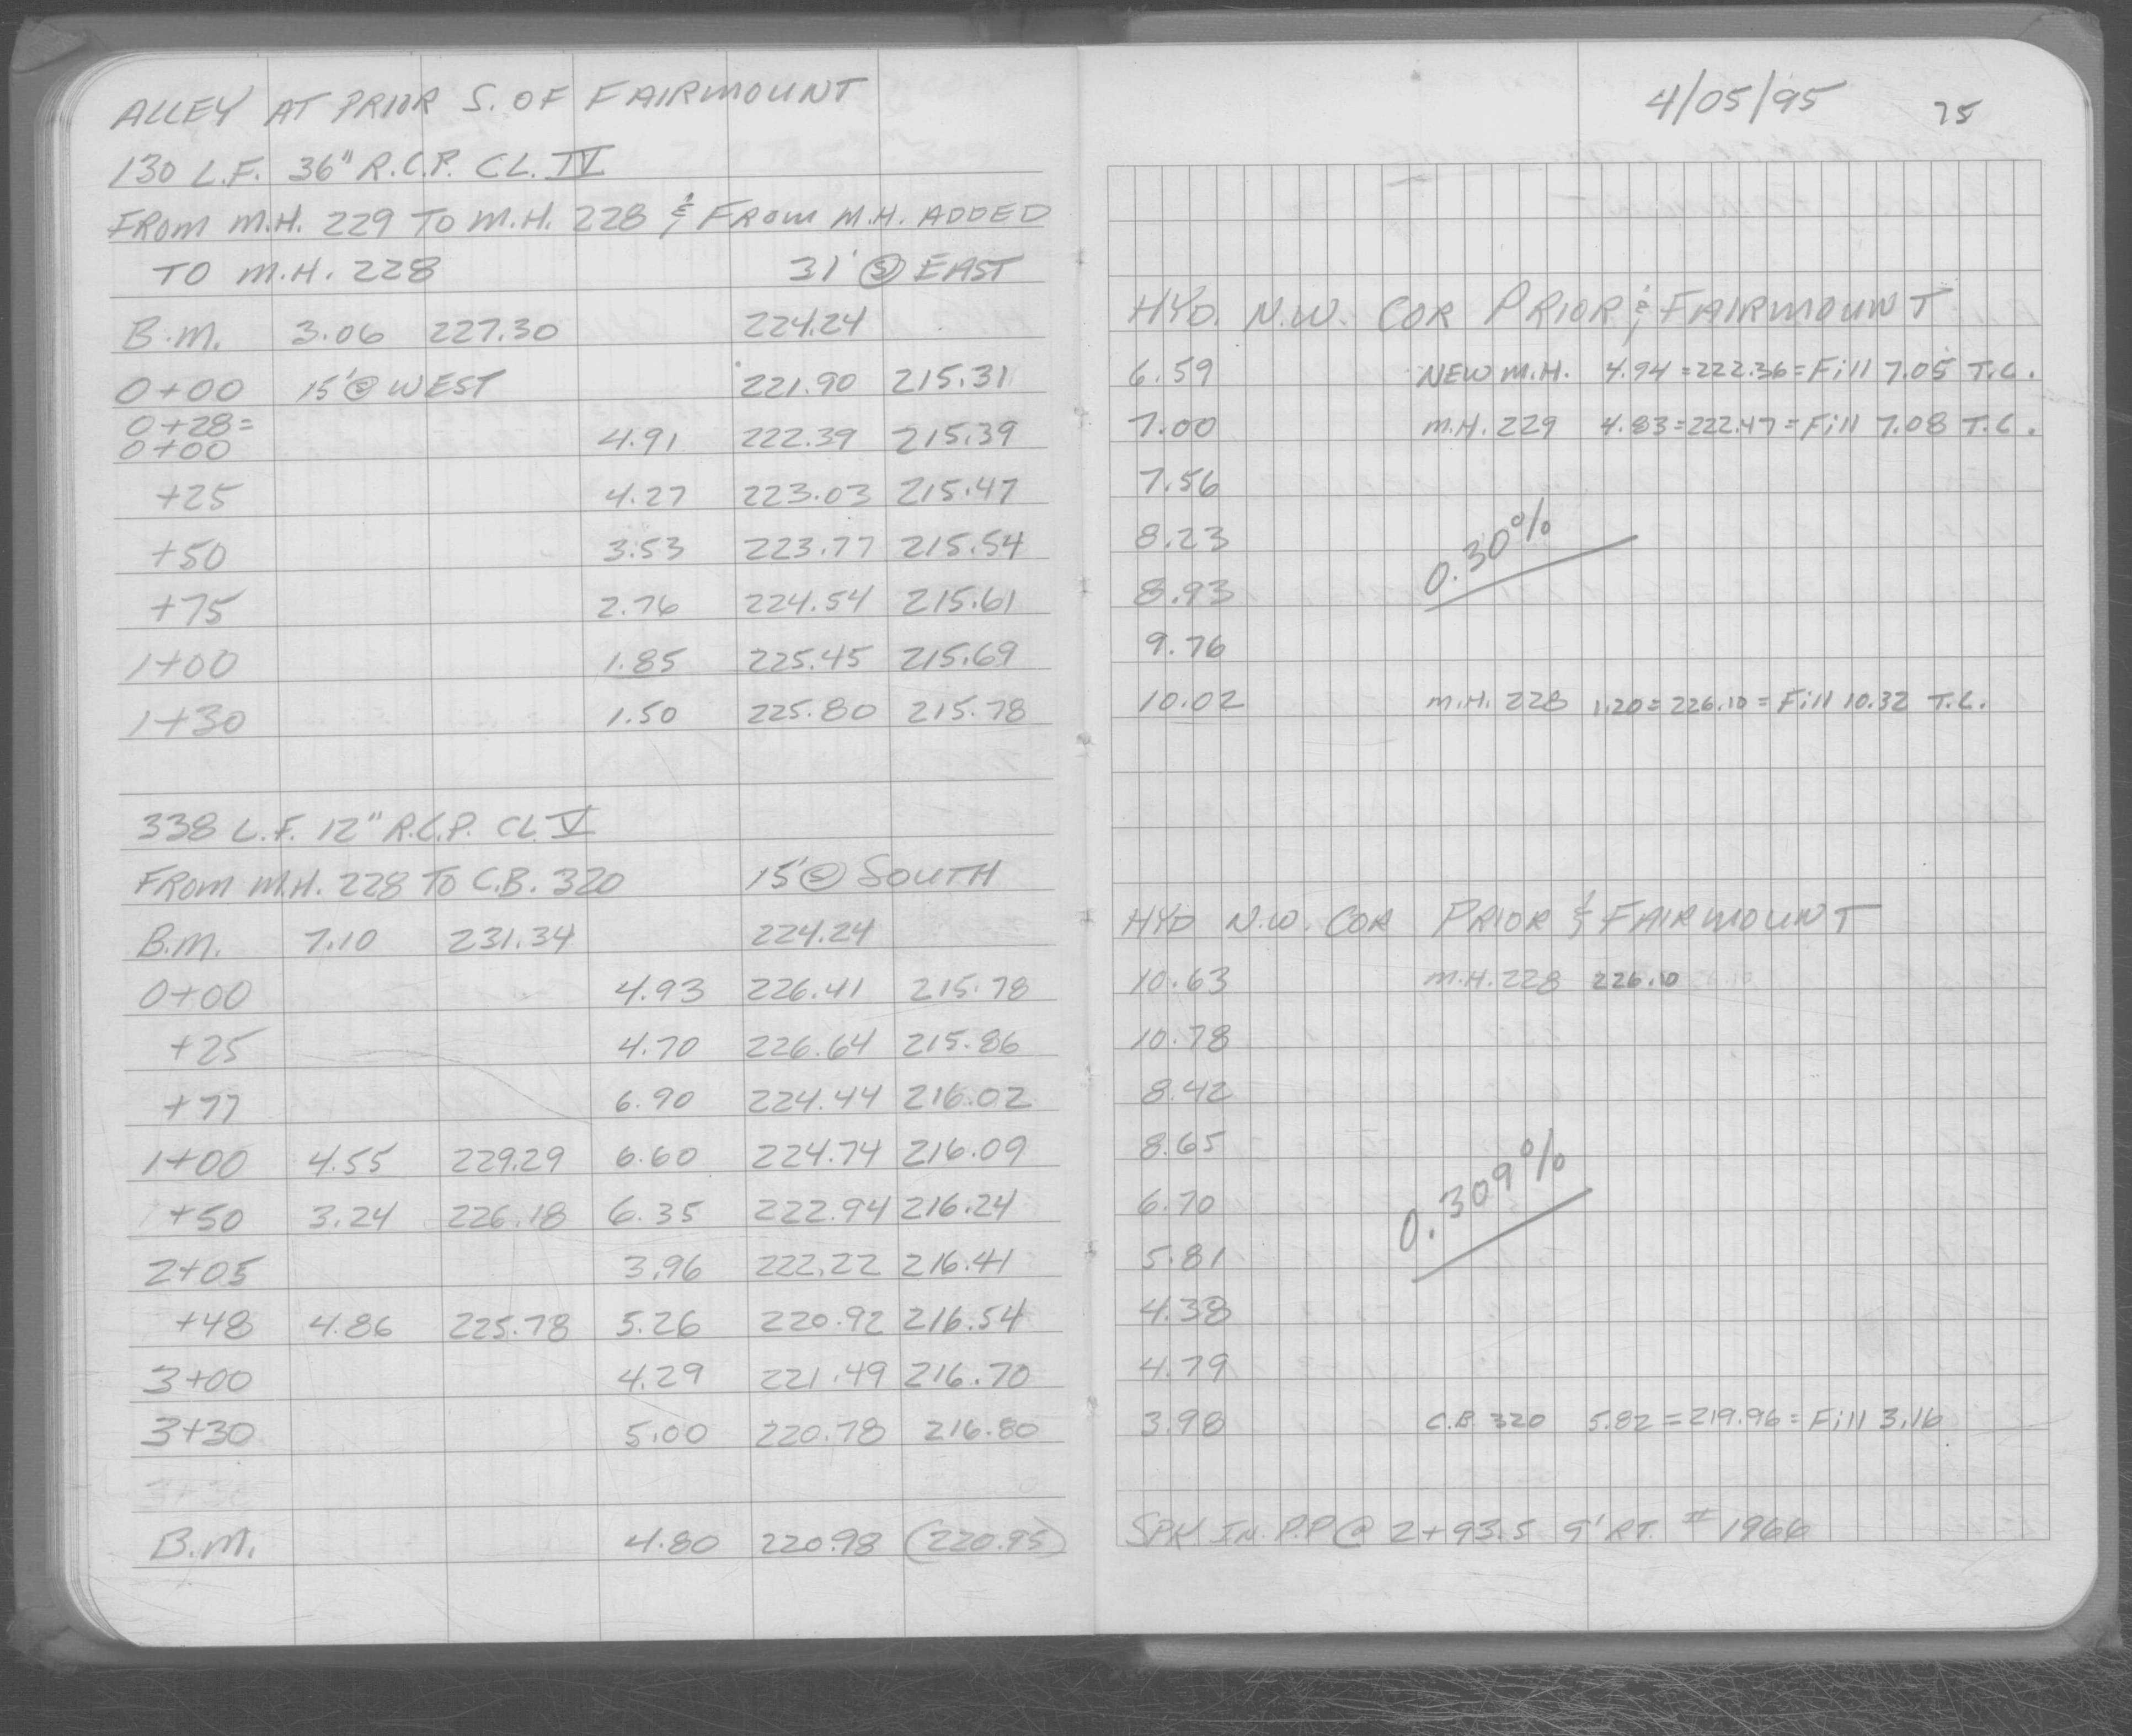 ALLEY AT PRIOR S. OF FAIRMOUNT
130 L.F. 36" R.C.P. CL. IV
FROM M.H. 229 TO M.H. 228 & FROM M.H. ADDED
TO M.H. 228 31' Ⓢ EAST
B.M. 3.06 227.30 224.24
0+00 15' Ⓢ WEST 221.90 215.31
0+28=
0+00 4.91 222.39 215.39
+25 4.27 223.03 215.47
+50 3.53 223.77 215.54
+75 2.76 224.54 215.61
1+00 1.85 225.45 215.69
1+30 1.50 225.80 215.78
338 L.F. 12" R.C.P. CL. V
FROM M.H. 228 TO C.B. 320 15' Ⓢ SOUTH
B.M. 7.10 231.34 224.24
0+00 4.93 226.41 215.78
+25 4.70 226.64 215.86
+77 6.90 224.44 216.02
1+00 4.55 229.29 6.60 224.74 216.09
+50 3.24 226.18 6.35 222.94 216.24
2+05 3.96 222.22 216.41
+48 4.86 225.78 5.26 220.92 216.54
3+00 4.29 221.49 216.70
3+30 5.00 220.78 216.80
B.M. 4.80 220.98 (220.95)
4/05/95 75
HYD. N.W. COR PRIOR & FAIRMOUNT
6.59 NEW M.H. 4.94=222.36=Fill 7.05 T.C.
7.00 M.H. 229 4.83=222.47=Fill 7.08 T.C.
7.56
8.23 0.30%
8.93
9.76
10.02 M.H. 228 1.20=226.10=Fill 10.32 T.C.
HYD N.W. COR PRIOR & FAIRMOUNT
10.63 M.H. 228 226.10
10.78
8.42
8.65
6.70 0.309%
5.81
4.38
4.79
3.98 C.B. 320 5.82=219.96=Fill 3.16
SPK IN P.P @ 2+93.5 9' RT. # 1966